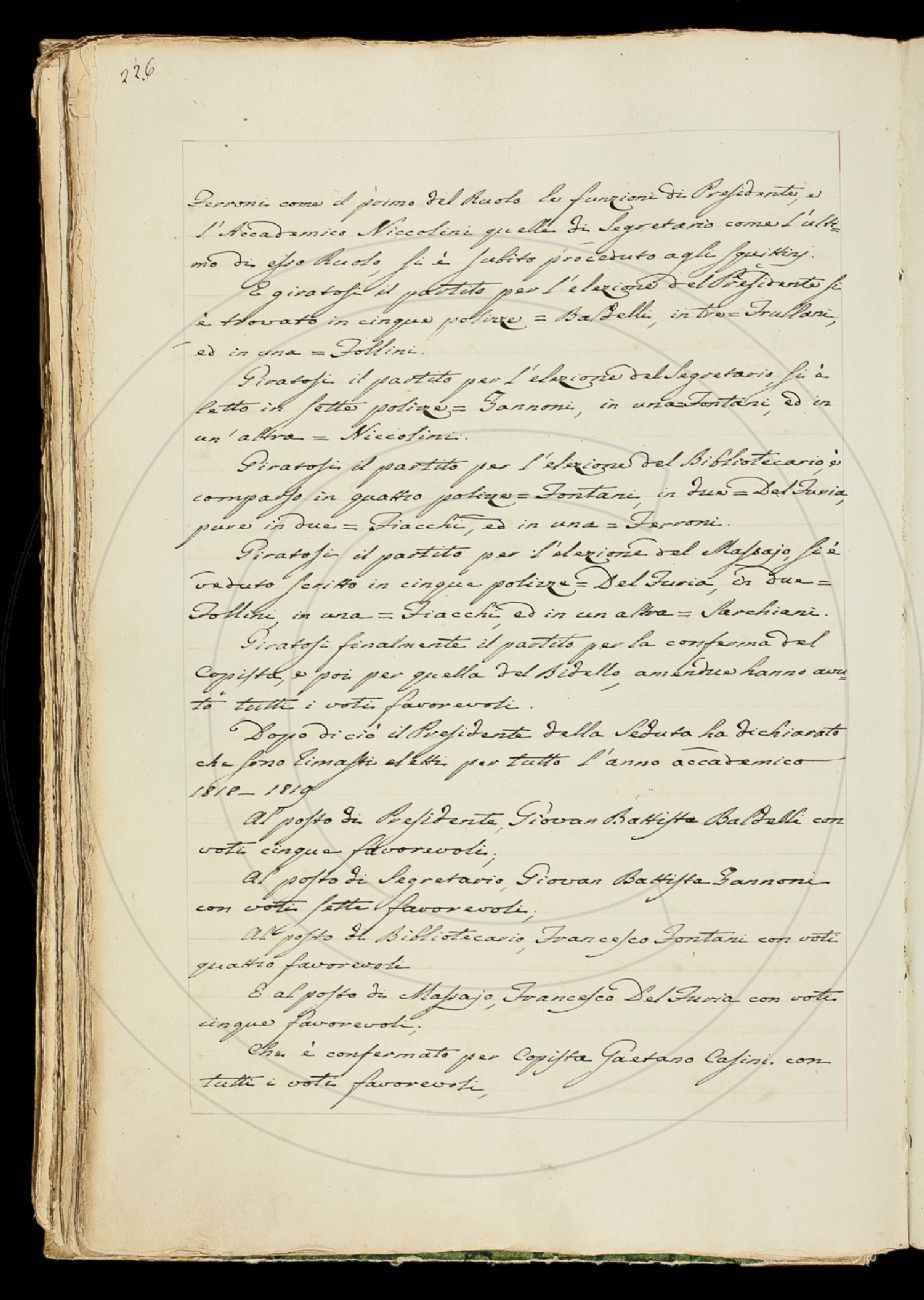 226
Ferroni come il primo del Ruolo le funzioni di Presidente, e
l'Accademico Niccolini quelle di Segretario come l'ulti=
mo di esso Ruolo, si è subito proceduto agli squittinj.
E giratosi il partito per l'elezione del Presidente si
è trovato in cinque polizze = Baldelli, in tre = Frullani,
ed in una = Follini.
Giratosi il partito per l'elezione del Segretario, si è
letto in sette polizze = Zannoni, in una = Fontani, ed in
un'altra = Niccolini.
Giratosi il partito per l'elezione del Bibliotecario, è
comparso in quattro polizze = Fontani, in due = Del Furia,
pure in due = Fiacchi, ed in una = Ferroni.
Giratosi il partito per l'elezione del Massajo, si è
veduto scritto in cinque polizze = Del Furia, in due =
Follini, in una = Fiacchi, ed in un altra = Sarchiani.
Giratosi finalmente il partito per la conferma del
Copista, e poi per quella del Bidello, amendue hanno avu=
to tutti i voti favorevoli.
Dopo di ciò il Presidente della Seduta ha dichiarato
che sono rimasti eletti per tutto l'anno accademico
1818 – 1819
Al posto di Presidente, Giovan Battista Baldelli con
voti cinque favorevoli;
Al posto di Segretario, Giovan Battista Zannoni
con voti sette favorevoli;
Al posto di Bibliotecario, Francesco Fontani con voti
quattro favorevoli
E al posto di Massajo, Francesco Del Furia con voti
cinque favorevoli;
Che è confermato per Copista Gaetano Casini con
tutti i voti favorevoli,